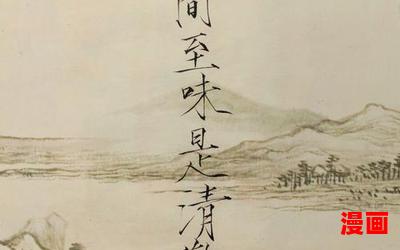 间至味是清
漫画